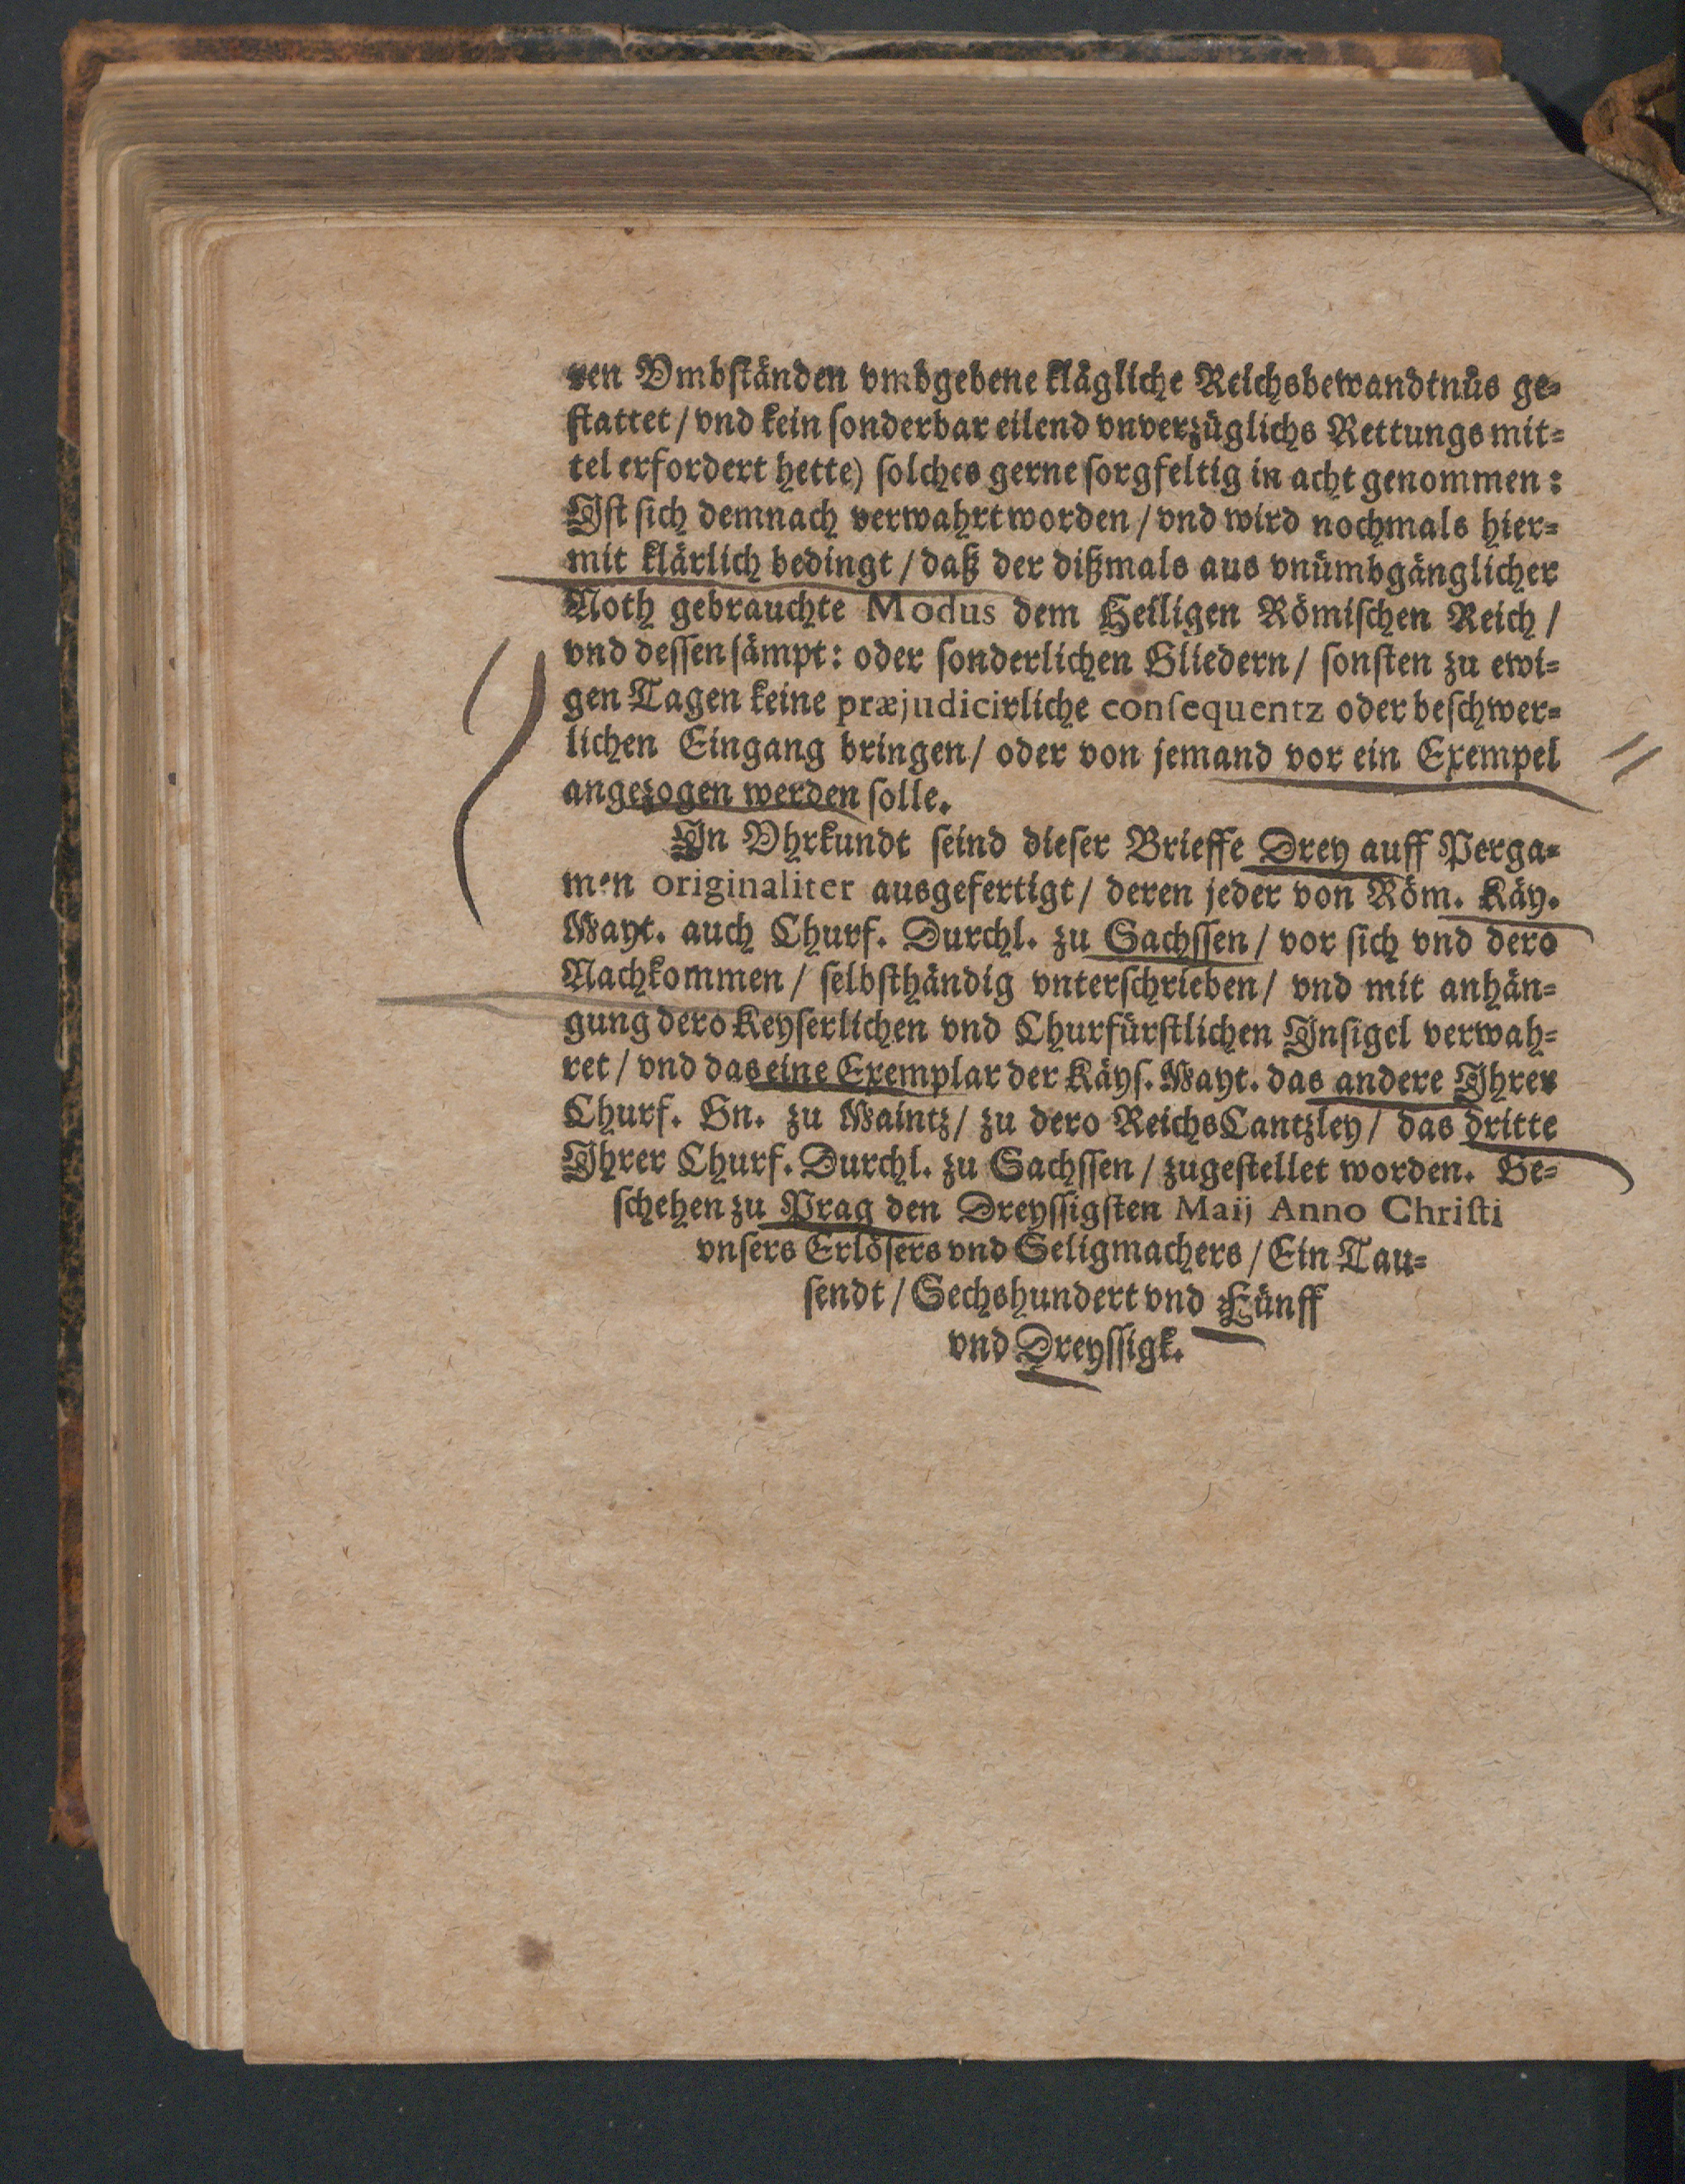 ren Vmbständen vmbgebene klägliche Reichsbewandtnüs ge-
stattet / vnd kein sonderbar eilend vnverzüglichs Rettungs mit-
tel erfordert hette) solches gerne sorgfeltig in acht genommen:
Ist sich demnach verwahrt worden / vnd wird nochmals hier-
mit klärlich bedingt / daß der dißmals aus vnümbgänglicher
Noth gebrauchte Modus dem Heiligen Römischen Reich /
vnd dessen sämpt: oder sonderlichen Gliedern / sonsten zu ewi-
gen Tagen keine præjudicirliche consequentz oder beschwer-
lichen Eingang bringen / oder von jemand vor ein Exempel
angezogen werden solle.
In Vhrkundt seind dieser Brieffe Drey auff Perga-
men originaliter ausgefertigt / deren jeder von Röm. Käy.
Mayt. auch Churf. Durchl. zu Sachssen / vor sich vnd dero
Nachkommen / selbsthändig vnterschrieben / vnd mit anhän-
gung dero Keyserlichen vnd Churfürstlichen Insigel verwah-
ret / vnd das eine Exemplar der Käys. Mayt. das andere Ihrer
Churf. Gn. zu Maintz / zu dero ReichsCantzley / das dritte
Ihrer Churf. Durchl. zu Sachssen / zugestellet worden. Ge-
schehen zu Prag den Dreyssigsten Maij Anno Christi
vnsers Erlösers vnd Seligmachers / Ein Tau-
sendt / Sechshundert vnd Fünff
vnd Dreyssigk.